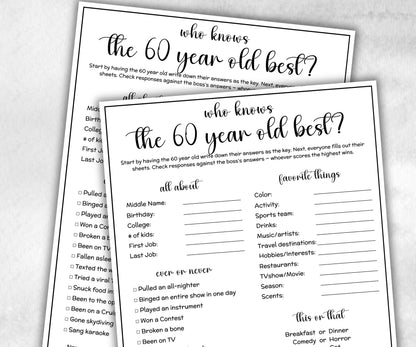 who knows
the 60 year old best?
Start by having the 60 year old write down their answers as the key. Next, everyone
sheets. Check responses against the boss's answers – whoever
all about
Middle
Birthd
Colleg
# of kids
First J
Last Jo
□ Pulled a
□ Binged
□ Played an
□ Won a Con
□ Broken a b
□ Been on TV
□ Fallen aslee
□ Texted the w
□ Tried a viral
□ Snuck food in
□ Been to the op
□ Been on a Cruis
□ Gone skydiving
□ Sang karaoke
who knows
the 60 year old best?
Start by having the 60 year old write down their answers as the key. Next, everyone fill out their
sheets. Check responses against the boss's answers – whoever scores the highest wins.
all about
Middle Name:
Birthday:
College:
# of kids:
First Job:
Last Job:
ever or never
□ Pulled an all-nighter
□ Binged an entire show in one day
□ Played an instrument
□ Won a Contest
□ Broken a bone
□ Been on TV
favorite things
Color:
Activity:
Sports team:
Drinks:
Music/artists:
Travel destinations:
Hobbies/Interests:
Restaurants:
TVshow/Movie:
Season:
Scents:
this or that
Breakfast or Dinner
Comedy or Horror